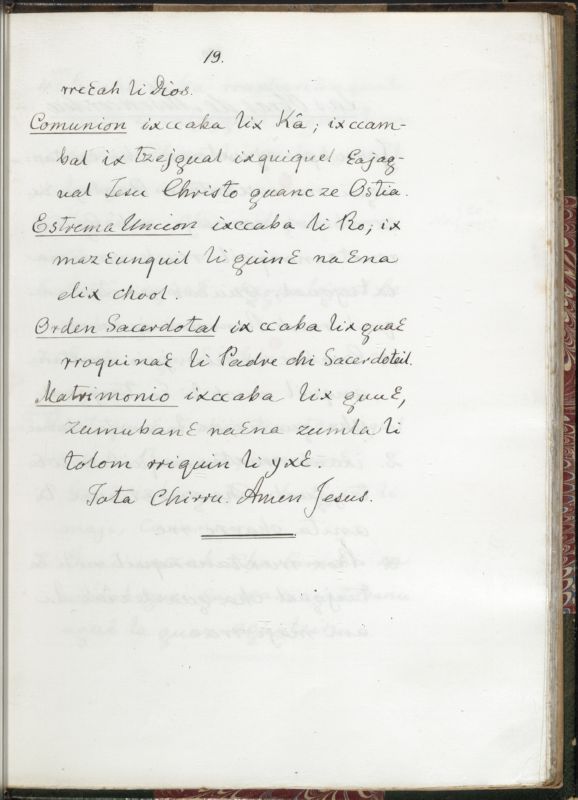 19.
rreƐah li Dios.
Comunion ixccaba lix Kâ; ixccam-
bal ix tzejqual ixquiquel Ɛajag-
ual Jesu Christo quanc ze Ostia.
Estrema Uncion ixccaba li Ro; ix
mazƐunquil li quinƐ naƐna
dix chool.
Orden Sacerdotal ix ccaba lix quaƐ
rroquinaƐ li Padre chi Sacerdoteil.
Matrimonio ixccaba lix quuƐ,
zumubanƐ naƐna zumla li
tolom rriquin li yxƐ.
Tata Chirru. Amen Jesus.